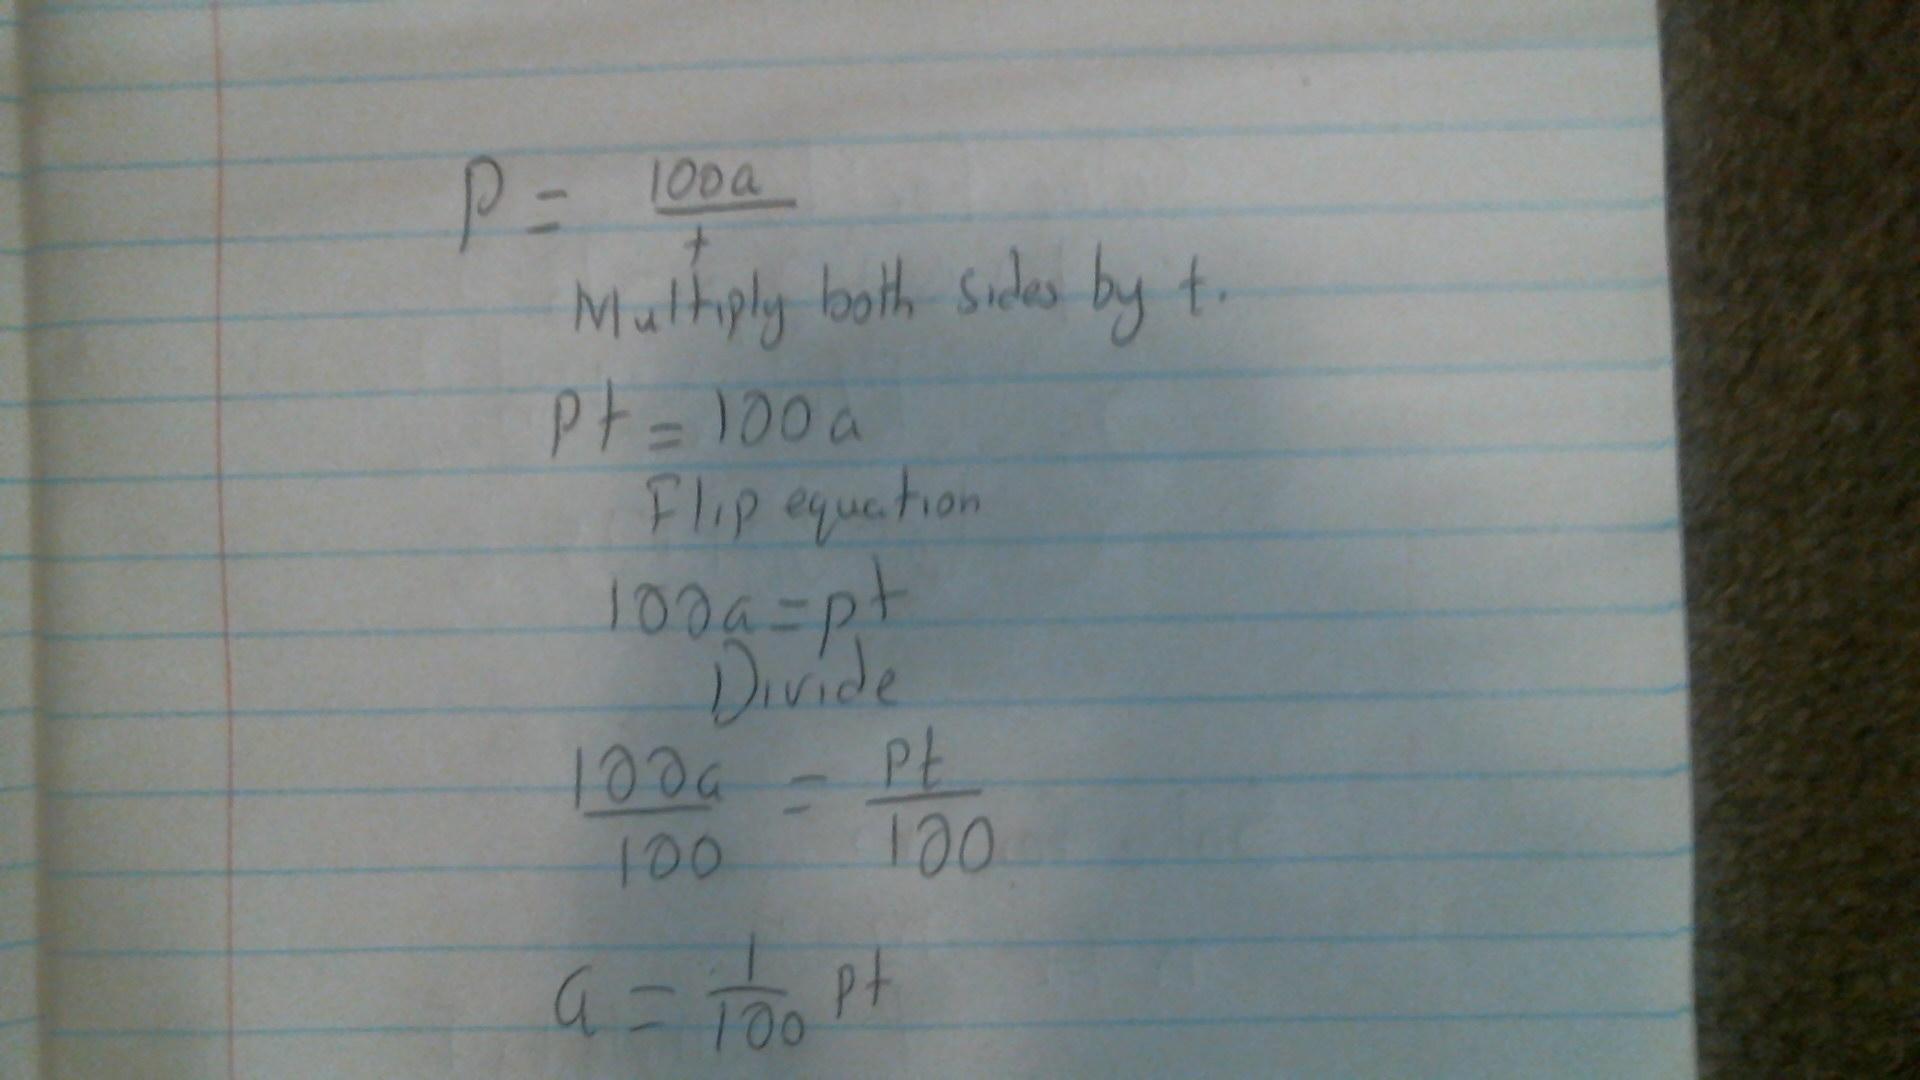 P = 100a
t
Multiply both sides by t.
pt = 100a
Flip equation
100a = pt
Divide
100a = pt
100 100
a = 1/100 pt